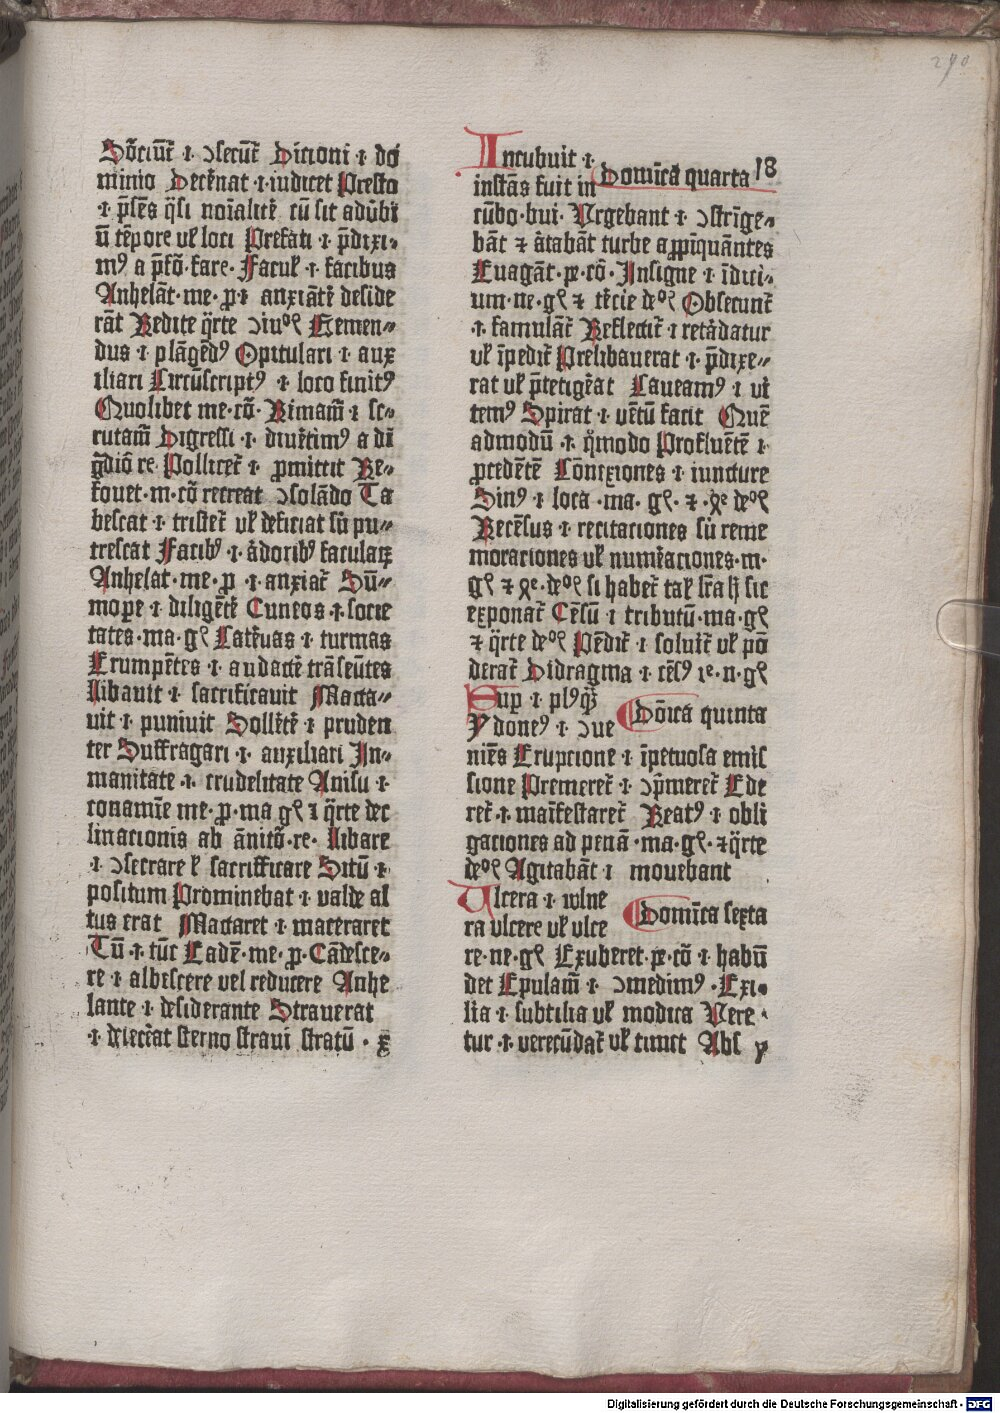 290
Sõciũt̃ ·i· ɔsecũt̃ Dicioni ·i· do
minio Decẽnat ·i· iudicet Presto
·i· p̃sẽs q̃si noĩalit̃e cũ sit adũbi
ũ tẽpore vł loci Prefati ·i· p̃dixi-
mꝰ a p̃fõ·fare· Facuł ·i· facibus
Anhelãt·me·ꝓ·i· anxiãtẽ deside
rãt Redite q̃rte ɔiuᵒꝝ Emen-
dus ·i· plãgẽdꝰ Opitulari ·i· aux
iliari Circũscriptꝰ ·i· loco finitꝰ
Quolibet me·cõ· Rimam̃ ·i· sc-
rutam̃ Digressi ·i· diuẽtimꝰ a di
g̃diõ re· Pollicet̃ ·i· ꝓmittit Re-
fouet·m·cõ recreat ɔsolãdo Ta
bescat ·i· tristet̃ vł deficiat sũ pu-
trescat Facibꝰ ·i· ãdoribꝰ faculaꝝ
Anhelat·me·ꝓ ·i· anxiat̃ Sũ-
mope ·i· diligẽtẽ Cuneos ·i· socie
tates·ma·gꝭ Catẽuas ·i· turmas
Erumpẽtes ·i· audactẽ trãseũtes
libauit ·i· sacrificauit Macta-
uit ·i· puniuit Sollẽtẽ ·i· pruden
ter Suffragari ·i· auxiliari In-
manitate ·i· crudelitate Anisu ·i·
conamĩe me·ꝓ·ma gꝭ ⁊ q̃rte dec
linacionis ab ãnitõ·re· Libare
·i· ɔsecrare ł sacrifficare Sitũ ·i·
positum Prominebat ·i· valde al
tus erat Mactaret ·i· maceraret
Tũ ·i· tũc Eadẽ·me·ꝓ· Cãdesce-
re ·i· albescere vel reducere Anhe
lante ·i· desiderante Strauerat
·i· delectãt sterno straui stratũ ·
Incubuit ·i·
instãs fuit in Domĩca quarta 18
cũbo·bui· Urgebant ·i· ɔstrĩge-
bãt ⁊ ãtabãt turbe aꝓpĩquãntes
Euagãt·ꝑ·cõ· Insigne ·i· ĩdici-
um·ne·gꝭ ⁊ tẽcie deᵒꝝ Obsecunt̃
·i· famulãt̃ Reflectit̃ ·i· retãdatur
vł ĩpedit̃ Prelibauerat ·i· p̃dixe-
rat vł p̃tetigẽat Caueamꝰ ·i· vi
temꝰ Spirat ·i· uẽtũ facit Quẽ
admodũ ·i· q̃modo Profluẽtẽ ·i·
ꝓcedẽtẽ Cõnexiones ·i· iuncture
Sinꝰ ·i· loca ·ma·gꝭ·⁊· deᵒꝝ
Recẽsus ·i· recitaciones sũ reme
moraciones vł numẽaciones·m·
gꝭ ⁊ deᵒꝝ si habet̃ tał sic
exponat̃ Cẽsũ ·i· tributũ·ma·gꝭ
⁊ q̃rte deᵒꝝ Pẽdit̃ ·i· soluit̃ vł põ
derat̃ Didragma ·i· n·gꝭ
Sup ·i· plꝰq̃
Ydoneꝰ ·i· ɔue Dõica quinta
niẽs Erupcione ·i· ĩpetuosa emis
sione Premeret̃ ·i· ɔp̃meret̃ Ede
ret̃ ·i· maĩfestaret̃ Reatꝰ ·i· obli
gaciones ad penã ·ma·gꝭ·⁊q̃rte
deᵒꝝ Agitabãt ·i· mouebant
Ulcera ·i· wlne
ra vlcere vł vlce Domĩca sexta
re·ne·gꝭ Exuberet·ꝑ·cõ ·i· habũ
det Epulam̃ ·i· ɔmedimꝰ ·Exi-
lia ·i· subtilia vł modica Vere-
tur ·i· verecũdat̃ vł timet Abs
Digitalisierung gefördert durch die Deutsche Forschungsgemeinschaft - DFG